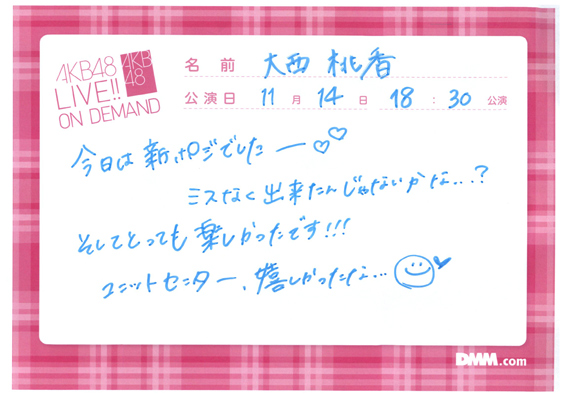 AKB48
LIVE!!
ON DEMAND
AKB
48
名前 大西 桃香
公演日 11月 14日 18:30 公演
今日は新ポジでしたー♡♡
ミスなく出来たんじゃないかな...?
そしてとっても楽しかったです!!!
ユニットセンター、嬉しかったな...
DMM.com